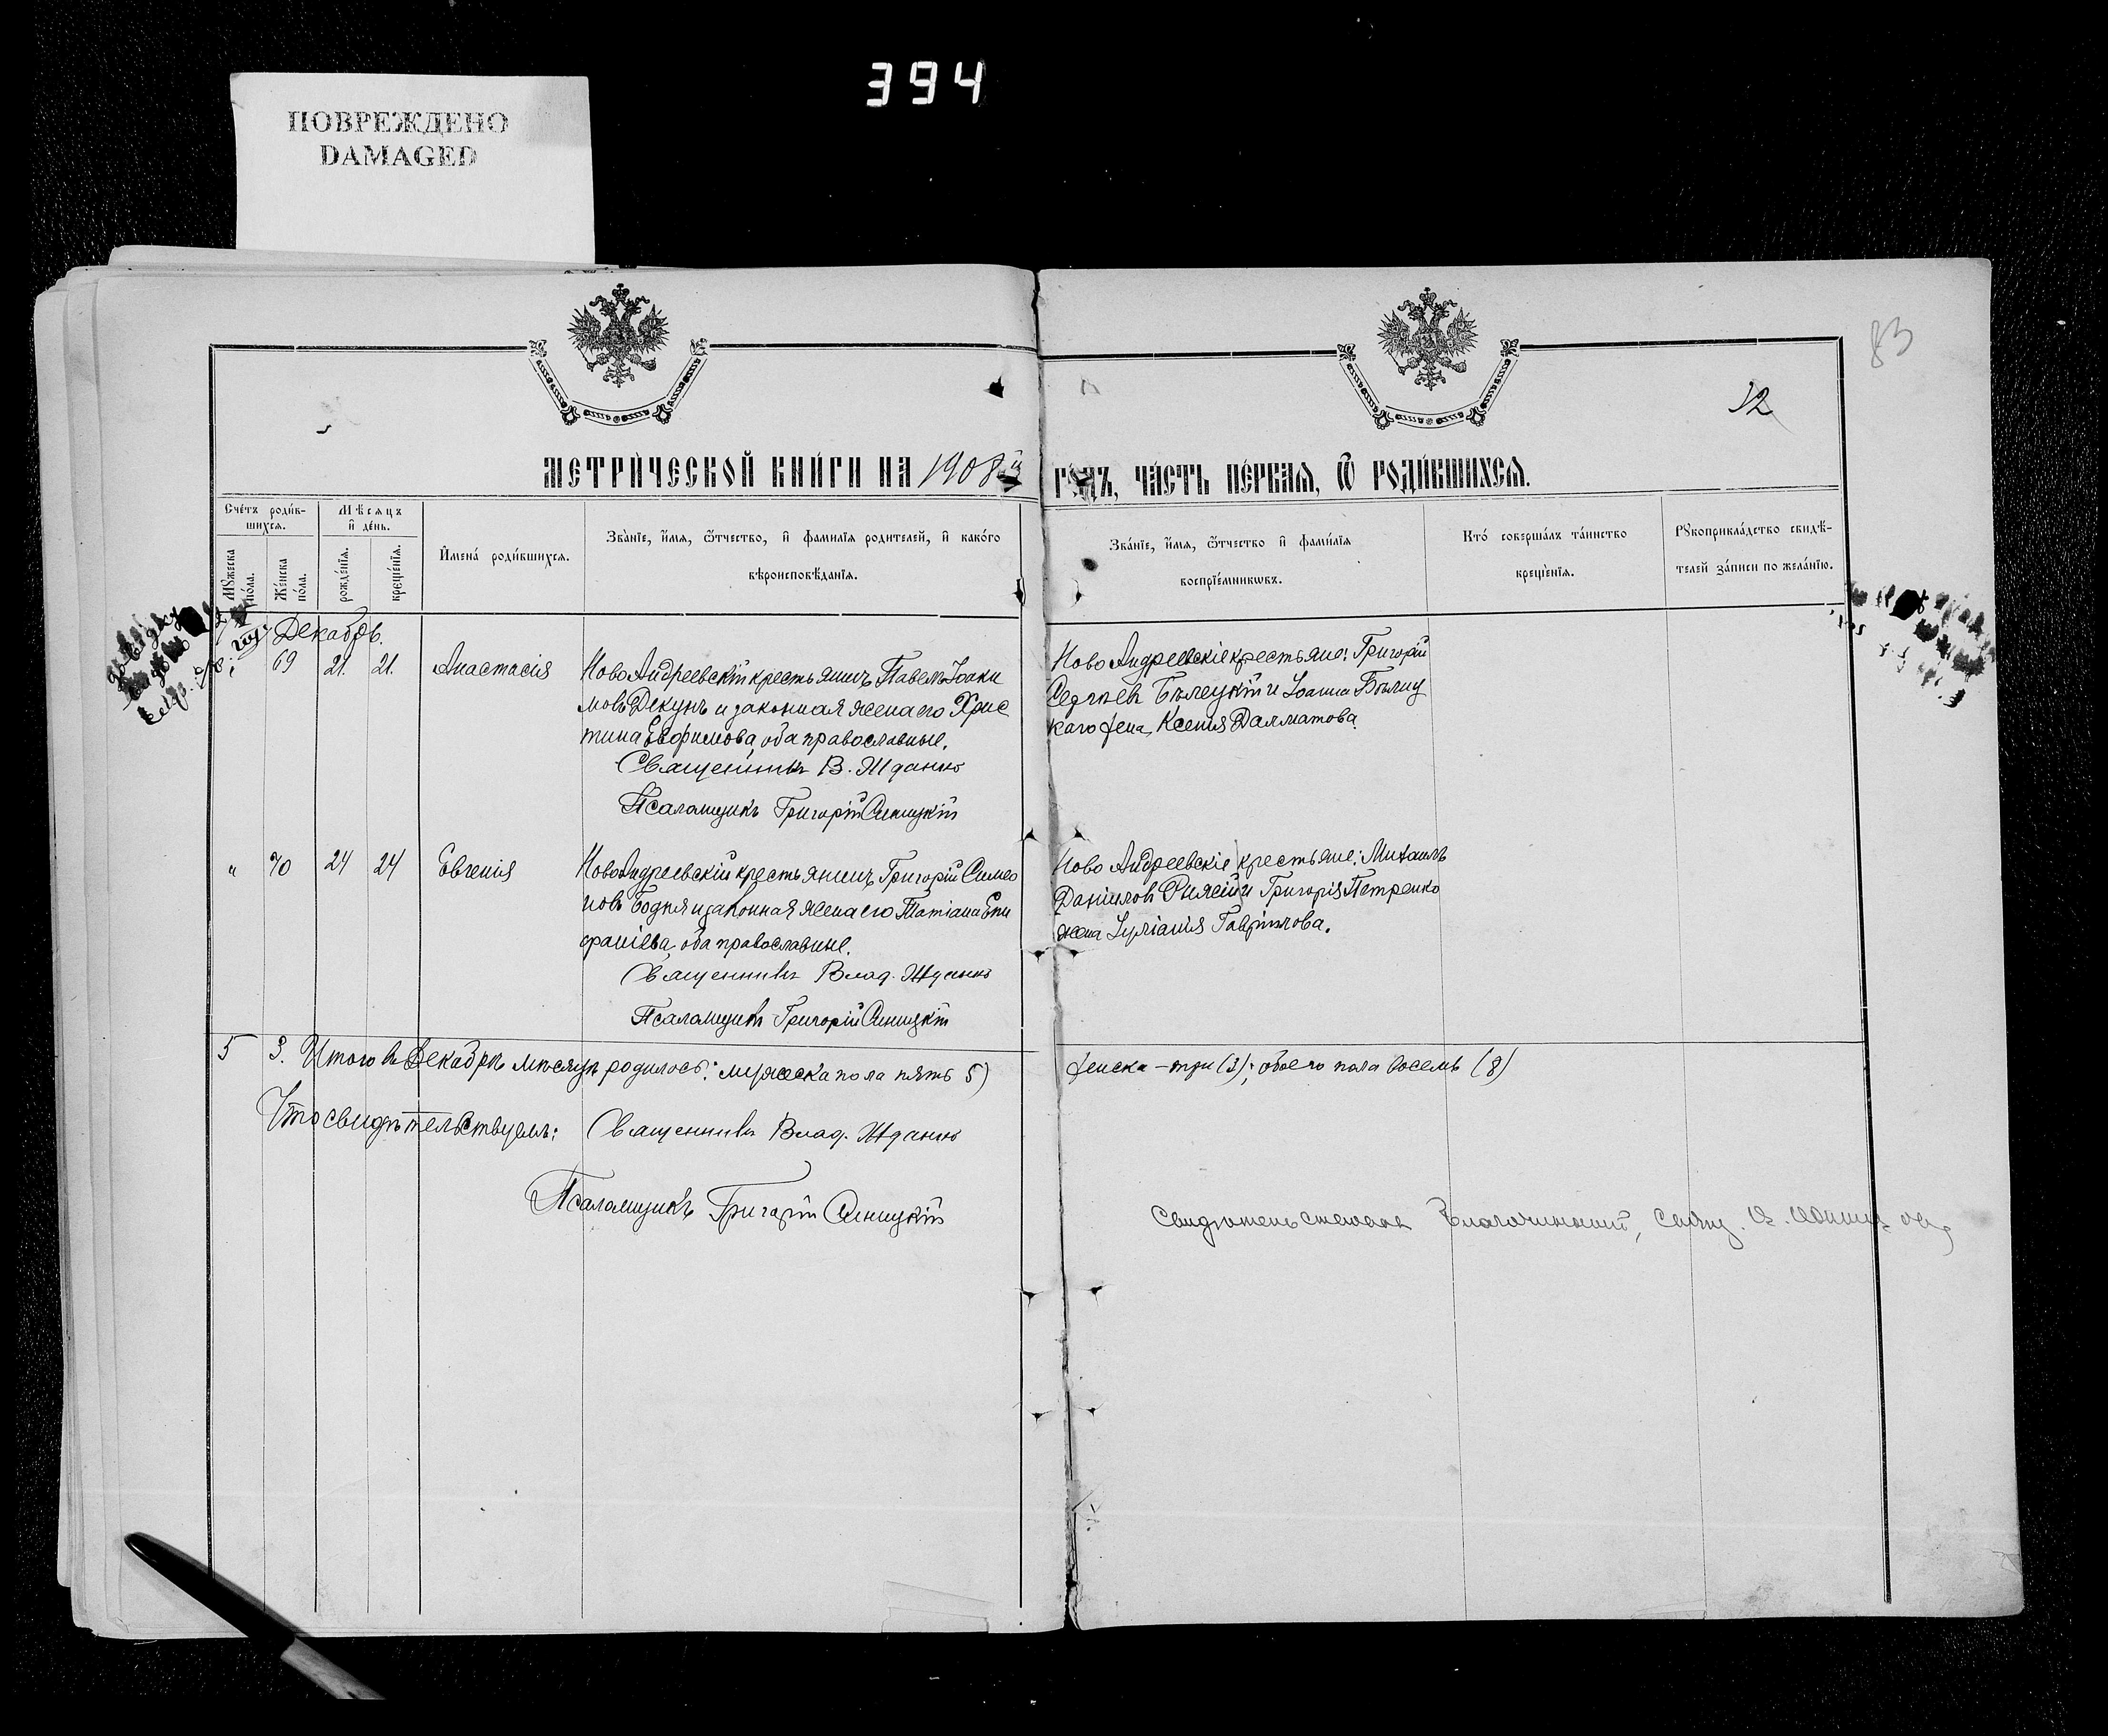 394
ПОВРЕЖДЕНО
DAMAGED
83
32
МЕТРИ́ЧЕСКОЙ КНИ́ГИ НА 1908й
ГО́ДЪ, ЧА́СТЬ ПЕ́РВАѦ, Ѽ РОДИ́ВШИХСѦ.
Сче́тъ роди́в-
шихсѧ.
Мѣсѧцъ
и҆ де́нь.
Мꙋ́жеска
по́ла.
Же́нска
по́ла.
рожде́нїѧ.
креще́нїѧ.
И҆мена̀ роди́вшихсѧ.
Зва́нїе, и҆́мѧ, ѻ҆́тчество, и҆ фами́лїѧ роди́телей, и҆ како́гѡ
вѣроисповѣ́данїѧ.
Зва́нїе, и҆́мѧ, ѻ҆́тчество и҆ фами́лїѧ
воспрїе́мникѡвъ.
Кто̀ соверша́лъ та́инство
креще́нїѧ.
Рꙋкоприкла́дство свидѣ́-
телей за́писи по жела́нїю.
Декабрь.
69 21. 21. Анастасія
НовоАндреевскій крестьянинъ Павелъ Іоаки
мовъ Декунъ и законная жена его Хрис
тина Евфимова, оба православные.
Священникъ В. Жданко
Псаломщикъ Григорій Синицкій
Ново Андреевскіе крестьяне: Григорій
Сергѣевъ Бѣлецкій и Іоанна Бѣлиц
каго жена, Ксенія Далматова.
" 70 24 24 Евгенія
НовоАндреевскій крестьянинъ Григорій Симео
новъ Бодня и законная жена его Татіана Епи
фаніева, оба православные.
Священникъ Влад. Жданко
Псаломщикъ Григорій Синицкій
Ново Андреевскіе крестьяне: Михаилъ
Даніиловъ и Григорія Петренко
жена Іуліанія Гавріилова.
5 3. Итого въ Декабрѣ мѣсяцѣ родилось: мужеска пола пять 5)
женска – три (3); обоего пола восемь (8)
Что свидѣтельствуемъ: Священникъ Влад. Жданко
Псаломщикъ Григорій Синицкій
Благочинный, Свящ.